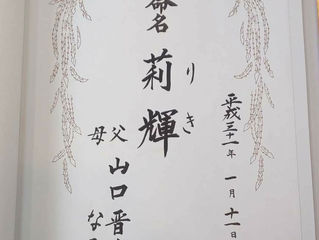 平成三十一年 一月十一日
命名 莉輝
りき
父 山口晋
母 な